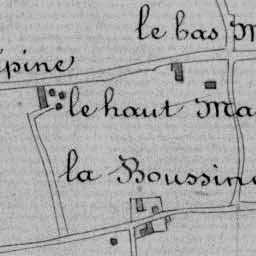 le bas M
épine
le haut Ma
la Boussine